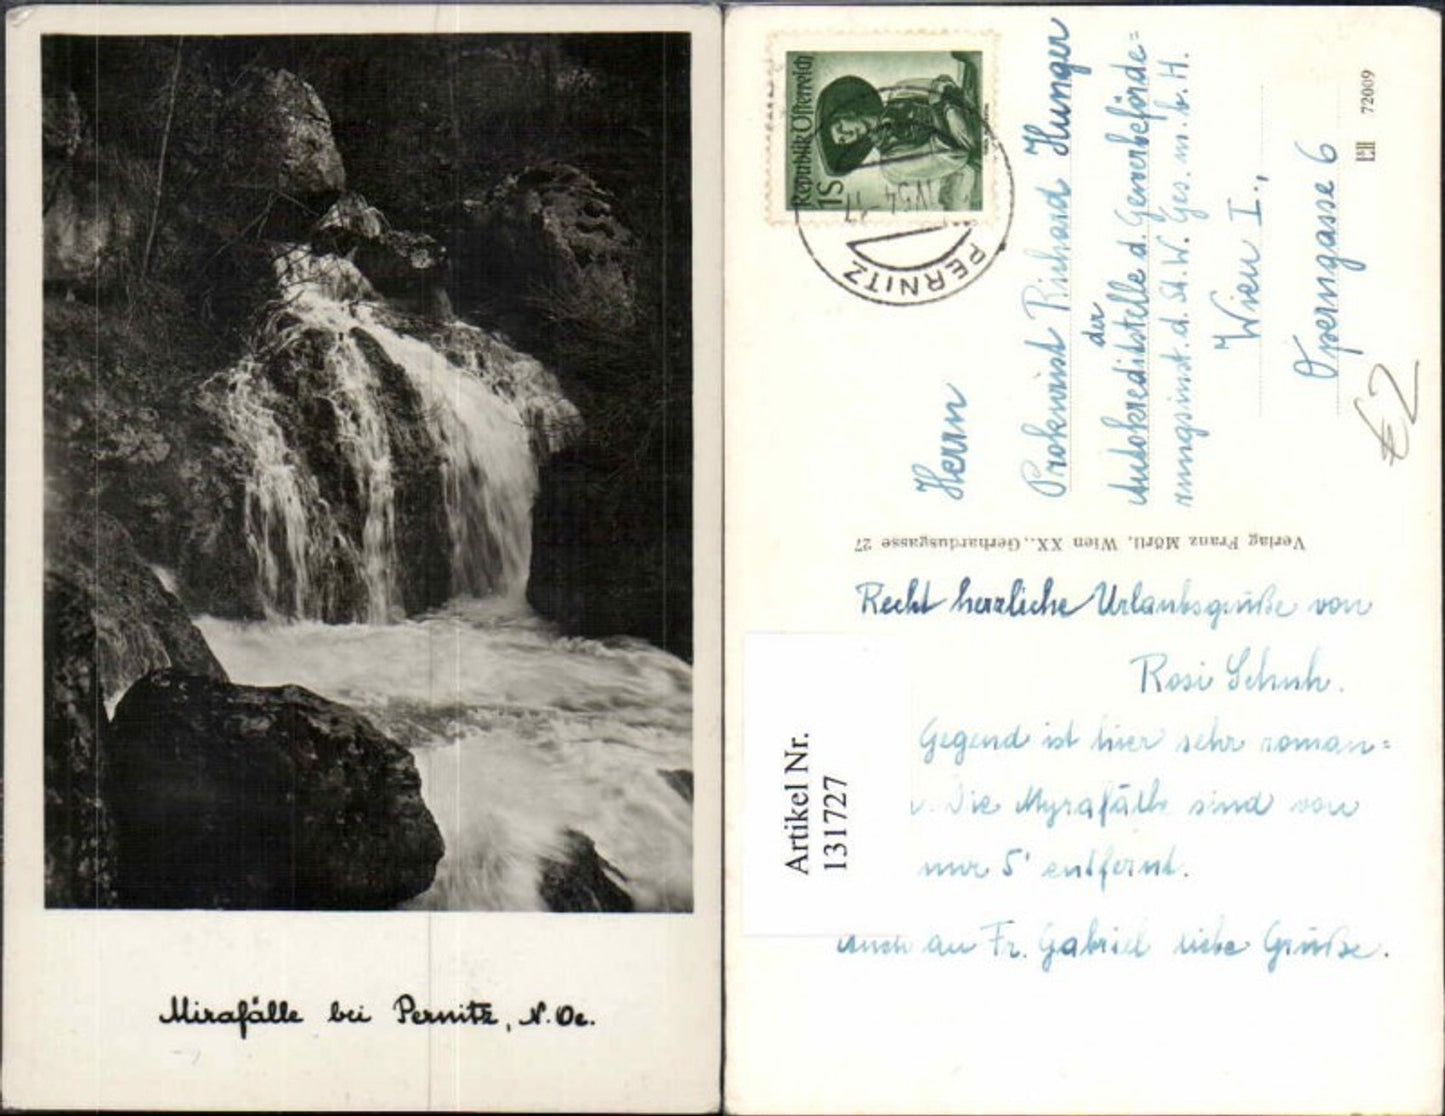 Mirafälle bei Pernitz, N.Oe.
Republik Österreich
1S
PERNITZ
Herrn
Prokurist Richard Hunger
der
Autokreditstelle d. Gewerbeförde=
rungsinst. d. St. W. Ges. m. b. H.
Wien I.,
Operngasse 6
€2
72009
Verlag Franz Mörtl, Wien XX., Gerhardusgasse 27
Recht herzliche Urlaubsgrüße von
Rosi Schuh.
Gegend ist hier sehr roman=
Die Myrafälle sind von
nur 5' entfernt.
Auch an Fr. Gabriel liebe Grüße.
Artikel Nr.
131727